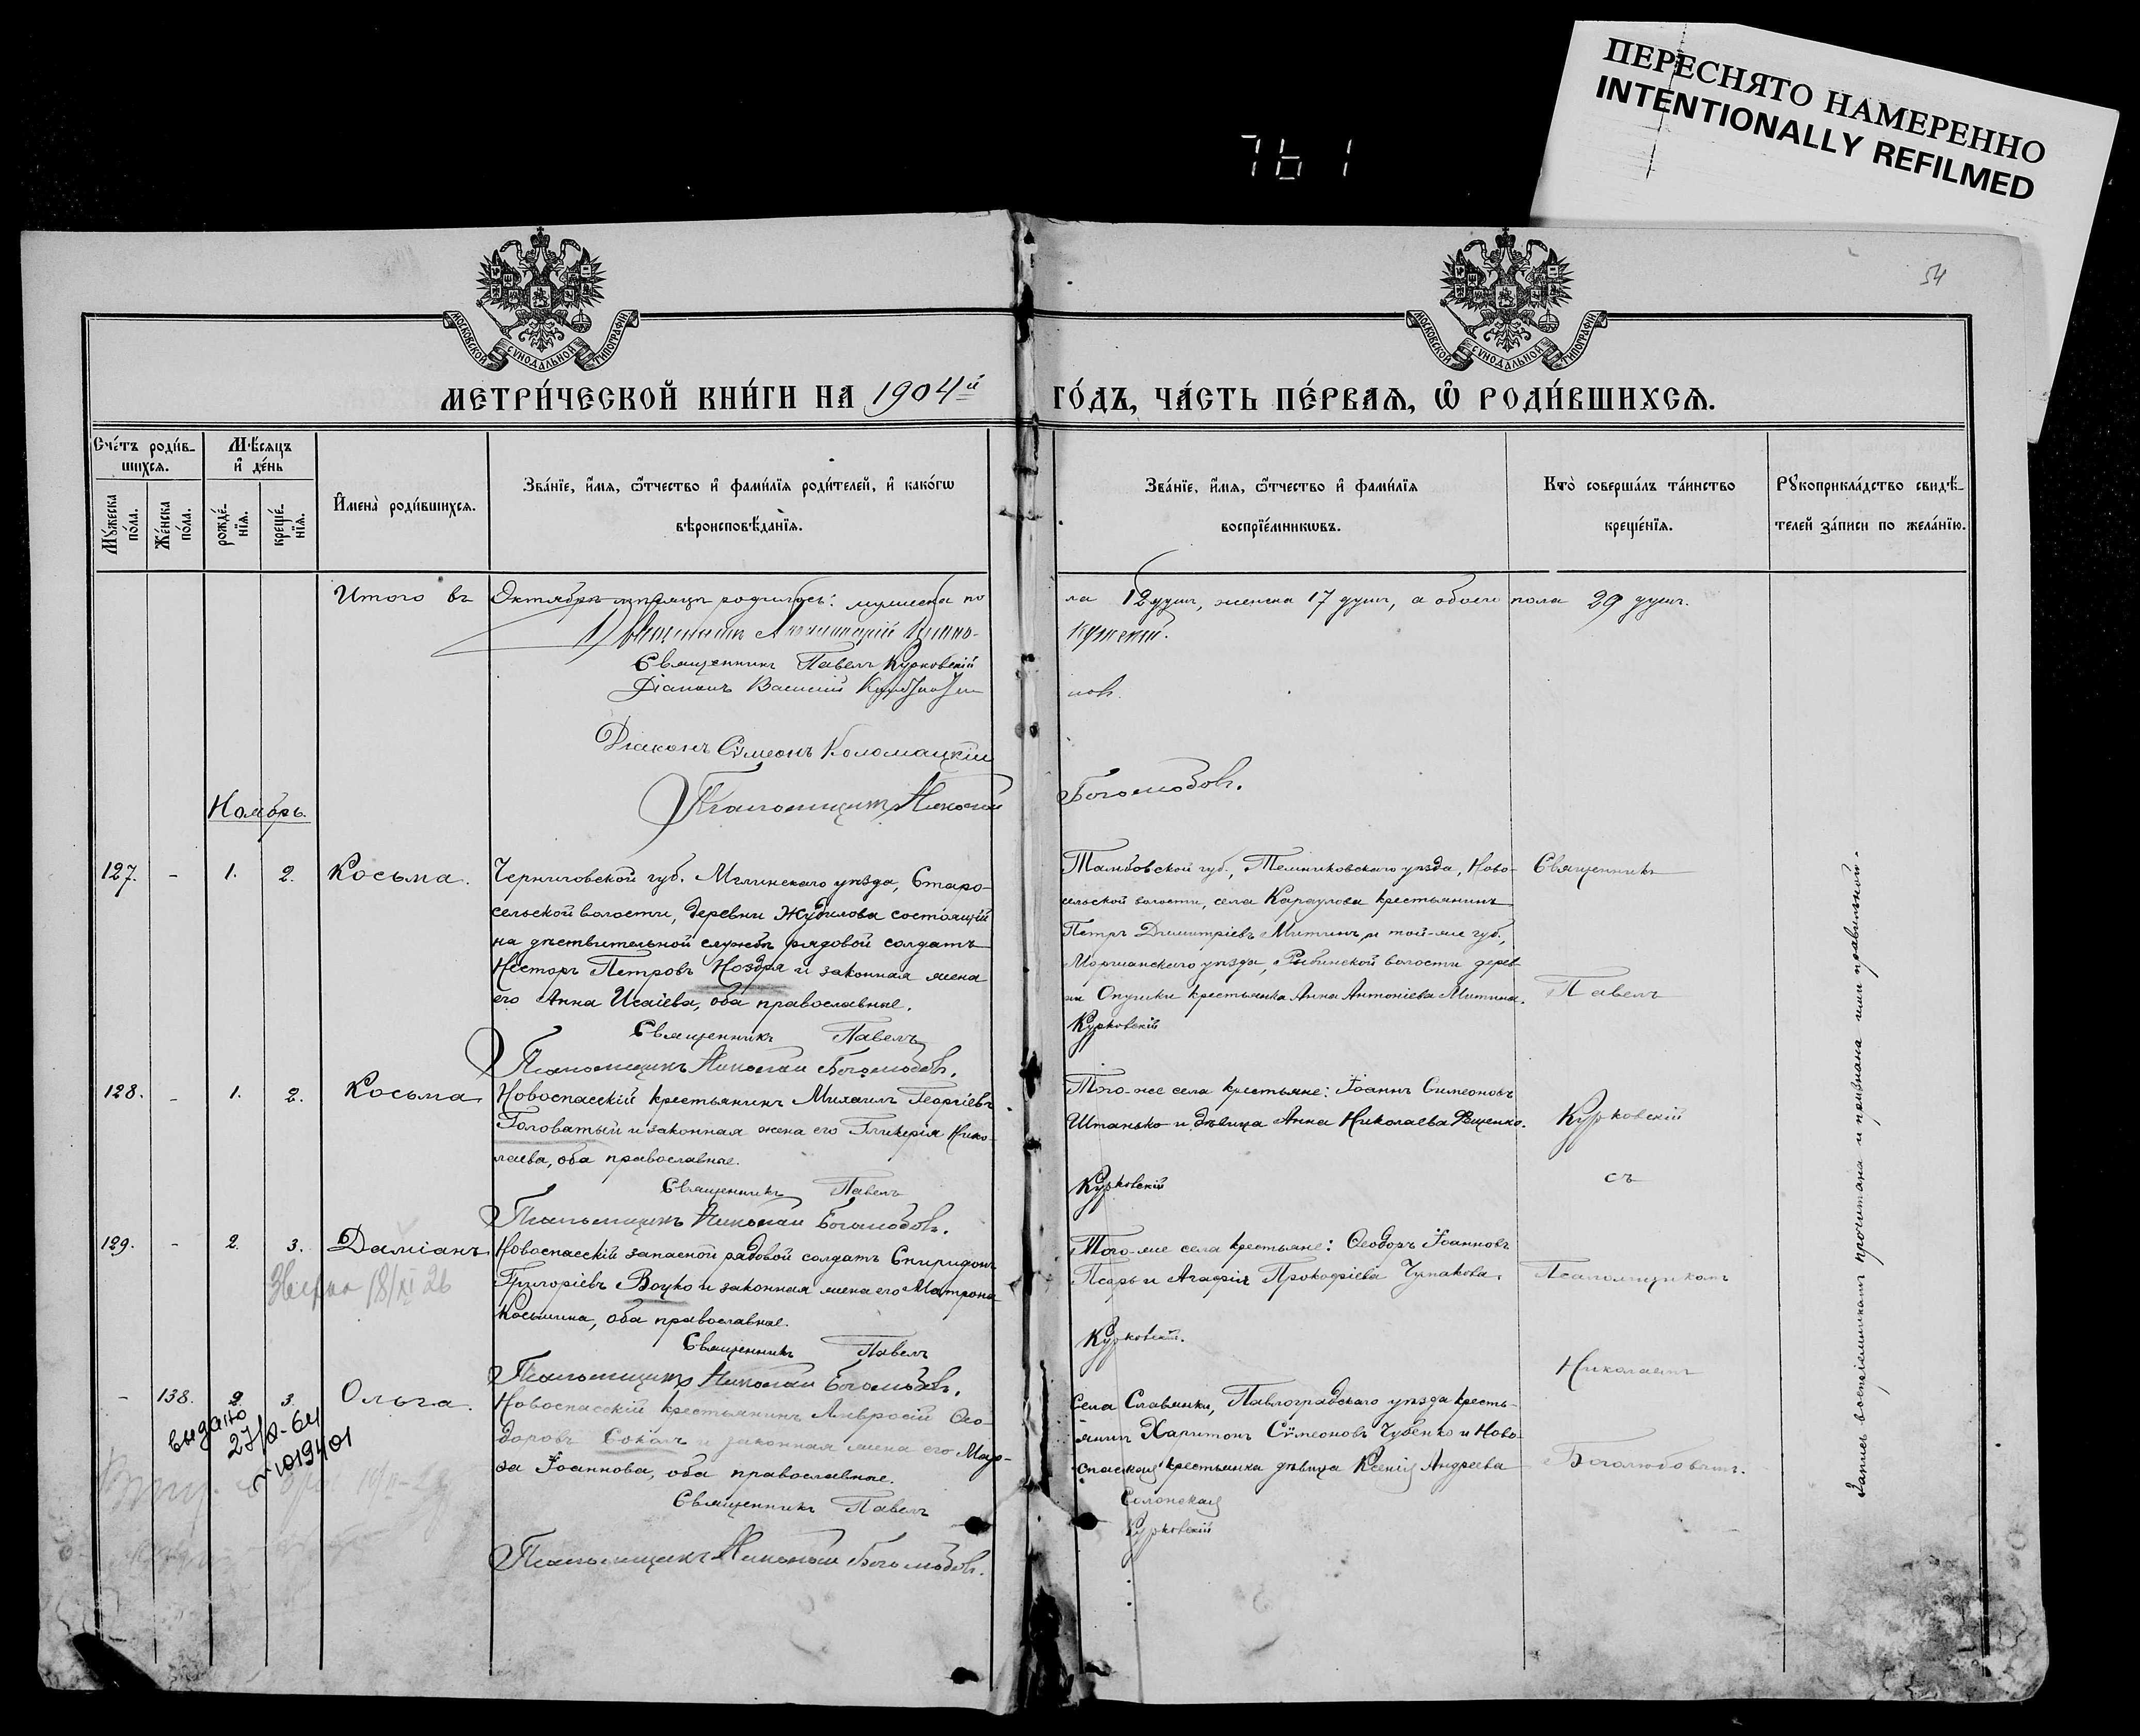 ПЕРЕСНЯТО НАМЕРЕННО
INTENTIONALLY REFILMED
761
54
МОСКОВСКОЙ СѴНОДАЛЬНОЙ ТИПОГРАФІИ
МОСКОВСКОЙ СѴНОДАЛЬНОЙ ТИПОГРАФІИ
МЕТРИ́ЧЕСКОЙ КНИ́ГИ НА 1904й ГО́ДЪ, ЧА́СТЬ ПЕ́РВАЯ, Ѡ РОДИ́ВШИХСЯ.
Сче́тъ роди́в-
шихся.
Мѣ́сяцъ
и де́нь
Мꙋ́жеска
по́ла.
Же́нска
по́ла.
рожде́-
нїя.
креще́-
нїя.
Имена̀ роди́вшихся.
Зва́нїе, и́мя, ѻ́тчество и фами́лїя роди́телей, и како́гѡ
вѣроисповѣ́данїя.
Зва́нїе, и́мя, ѻ́тчество и фами́лїя
воспрїе́мникѡвъ.
Кто̀ соверша́лъ та́инство
креще́нїя.
Рꙋкоприкла́дство свидѣ́-
телей за́писи по жела́нїю.
Итого въ Октябрѣ мѣсяцѣ родилось: мужеска по
ла 12 душъ, женска 17 душъ, а обоего пола 29 душъ.
Священникъ Павелъ Курковскій
Діаконъ Василій
новъ.
Діаконъ Сѵмеонъ Коломацкій
Псаломщикъ Николай Боголюбовъ.
Ноябрь.
127. - 1. 2. Косьма.
Черниговской губ. Мглинскаго уѣзда, Старо-
сельской волости, деревни Жудилова состоящій
на дѣствительной службѣ рядовой солдатъ
Несторъ Петровъ Ноздря и законная жена
его Анна Исаіева, оба православные.
Священникъ Павелъ Курковскій
Псаломщикъ Николай Боголюбовъ.
Тамбовской губ., Темниковскаго уѣзда, Ново-
сельской волости, села Караулова крестьянинъ
Петръ Димитріевъ Митинъ и той-же губ.,
Моршанскаго уѣзда, Рыбинской волости дерев-
ни Опушки крестьянка Анна Антоніева Митина.
Священникъ
Павелъ
128. - 1. 2. Косьма
Новоспасскій крестьянинъ Михаилъ Георгіевъ
Головатый и законная жена его Гликерія Нико-
лаева, оба православные.
Священникъ Павелъ Курковскій
Псаломщикъ Николай Боголюбовъ.
Того-же села крестьяне: Іоаннъ Симеоновъ
Штанько и дѣвица Анна Николаева Ященко.
Курковскій
съ
129. - 2. 3. Даміанъ
Новоспасскій запасной рядовой солдатъ Спиридонъ
Григоріевъ Воцко и законная жена его Матрона
Косьмина, оба православные.
Священникъ Павелъ Курковскій.
Псаломщикъ Николай Боголюбовъ.
Того-же села крестьяне: Ѳеодоръ Іоанновъ
Псарь и Агафія Прокофіева Чумакова.
Псаломщикомъ
Николаемъ
18/XI 26
- 138. 2. 3. Ольга.
Новоспасскій крестьянинъ Амвросій Ѳео-
доровъ Соколъ и законная жена его Мар-
ѳа Іоаннова, оба православные.
Священникъ Павелъ
Псаломщикъ Николай Боголюбовъ.
Села Славянки, Павлоградскаго уѣзда кресть-
янинъ Харитонъ Сѵмеоновъ Чубенко и Ново-
спаская крестьянка дѣвица Ксенія Андреева
Солонская
Курковскій
Боголюбовымъ.
выдано
Запись воспріемникамъ прочитана и признана ими правильной.